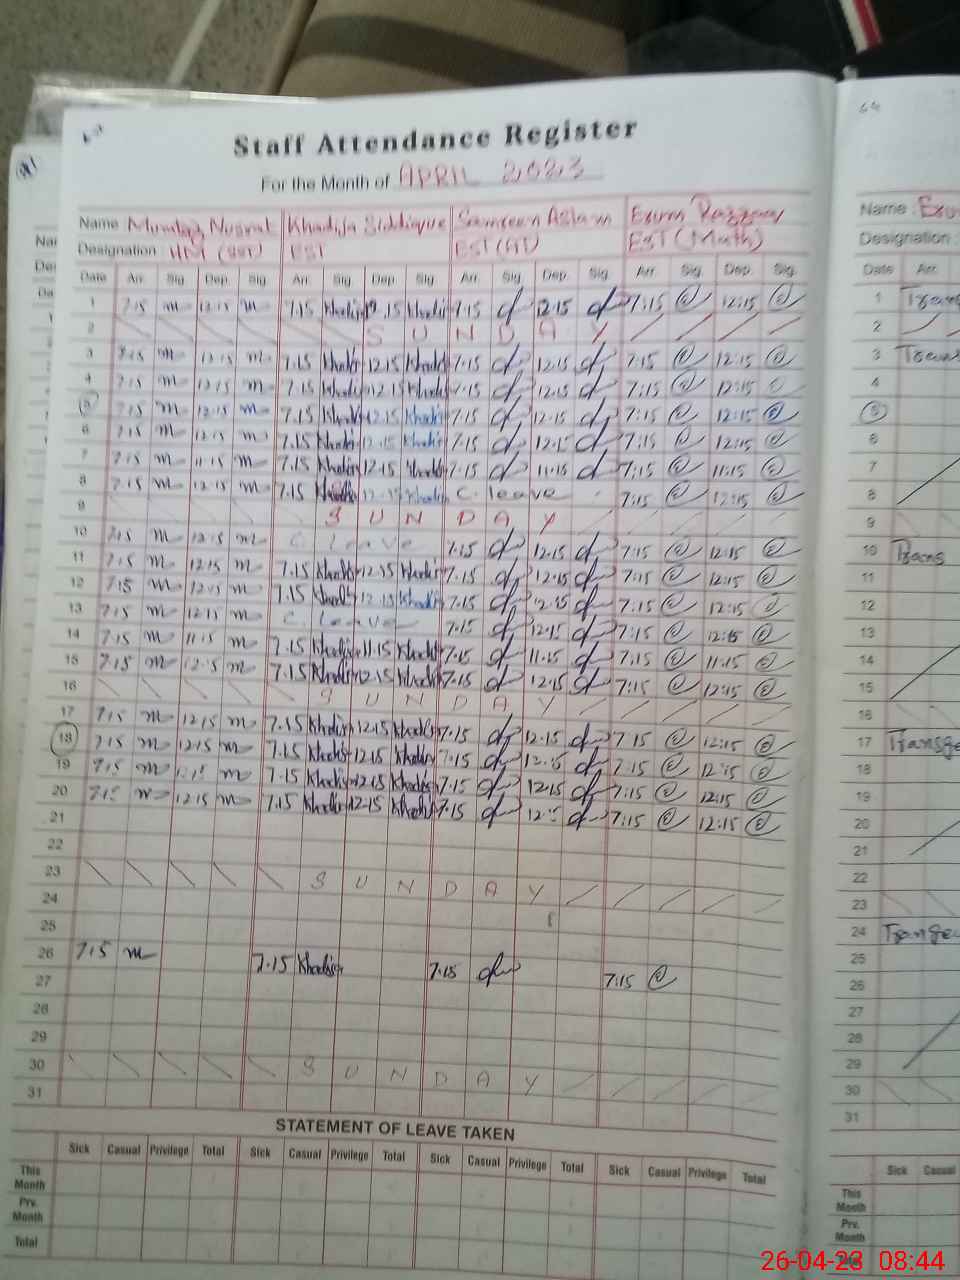 64
Staff Attendance Register
For the Month of APRIL 2023
Name Mumtaz Nusrat Khadija Siddique Samreen Aslam Erum Razzaq
Designation HM (SST) EST EST (AT) EST (Math)
Date Arr. Sig Dep. Sig. Arr. Sig. Dep. Sig. Arr. Sig. Dep. Sig. Arr. Sig. Dep. Sig.
1 7.15 m 12.15 m 7.15 Khadija 12.15 Khadija 7.15 12.15 7:15 12:15
2 SUNDAY
3 7.15 m 12.15 m 7.15 Khadija 12.15 Khadija 7.15 12.15 7:15 12:15
4 7.15 m 12.15 m 7.15 Khadija 12.15 Khadija 7.15 12.15 7:15 12:15
5 7.15 m 12.15 m 7.15 Khadija 12.15 Khadija 7.15 12.15 7:15 12:15
6 7.15 m 12.15 m 7.15 Khadija 12.15 Khadija 7.15 12.15 7:15 12:15
7 7.15 m 11.15 m 7.15 Khadija 12.15 Khadija 7.15 11.15 7:15 11:15
8 7.15 m 12.15 m 7.15 Khadija 12.15 Khadija C. leave 7:15 12:15
9 SUNDAY
10 7.15 m 12.15 m C. Leave 7.15 12.15 7:15 12:15
11 7.15 m 12.15 m 7.15 Khadija 12.15 Khadija 7.15 12.15 7:15 12:15
12 7.15 m 12.15 m 7.15 Khadija 12.15 Khadija 7.15 12.15 7:15 12:15
13 7.15 m 12.15 m C. leave 7.15 12.15 7:15 12:15
14 7.15 m 11.15 m 7.15 Khadija 11.15 Khadija 7.15 11.15 7:15 11:15
15 7.15 m 12.15 m 7.15 Khadija 12.15 Khadija 7.15 12.15 7:15 12:15
16 SUNDAY
17 7.15 m 12.15 m 7.15 Khadija 12.15 Khadija 7.15 12.15 7:15 12:15
18 7.15 m 12.15 m 7.15 Khadija 12.15 Khadija 7.15 12.15 7:15 12:15
19 7.15 m 12.15 m 7.15 Khadija 12.15 Khadija 7.15 12.15 7:15 12:15
20 7.15 m 12.15 m 7.15 Khadija 12.15 Khadija 7.15 12.15 7:15 12:15
21
22
23 SUNDAY
24
25
26 7.15 m 7.15 Khadija 7.15 7:15
27
28
29
30 SUNDAY
31
STATEMENT OF LEAVE TAKEN
Sick Casual Privilege Total Sick Casual Privilege Total Sick Casual Privilege Total Sick Casual Privilege Total
This Month
Prv. Month
Total
Name
Designation
Date Arr.
1
2
3
4
5
6
7
8
9
10
11
12
13
14
15
16
17
18
19
20
21
22
23
24
25
26
27
28
29
30
31
Sick Casual
This Month
Prv. Month
26-04-23 08:44